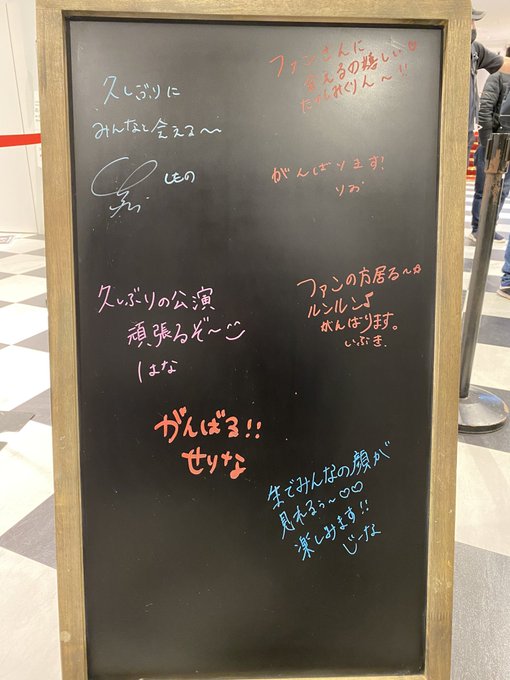 久しぶりに
みんなと会える〜
しもの
ファンさんに
会えるの嬉しい♡
たのしみぐりん〜!!
がんばります!
りお
久しぶりの公演
頑張るぞ〜
はな
ファンの方居る〜☆
ルンルン♪
がんばります。
いぶき
がんばる!!
せりな
生でみんなの顔が
見れるぅ〜♡♡
楽しみます!!
じーな